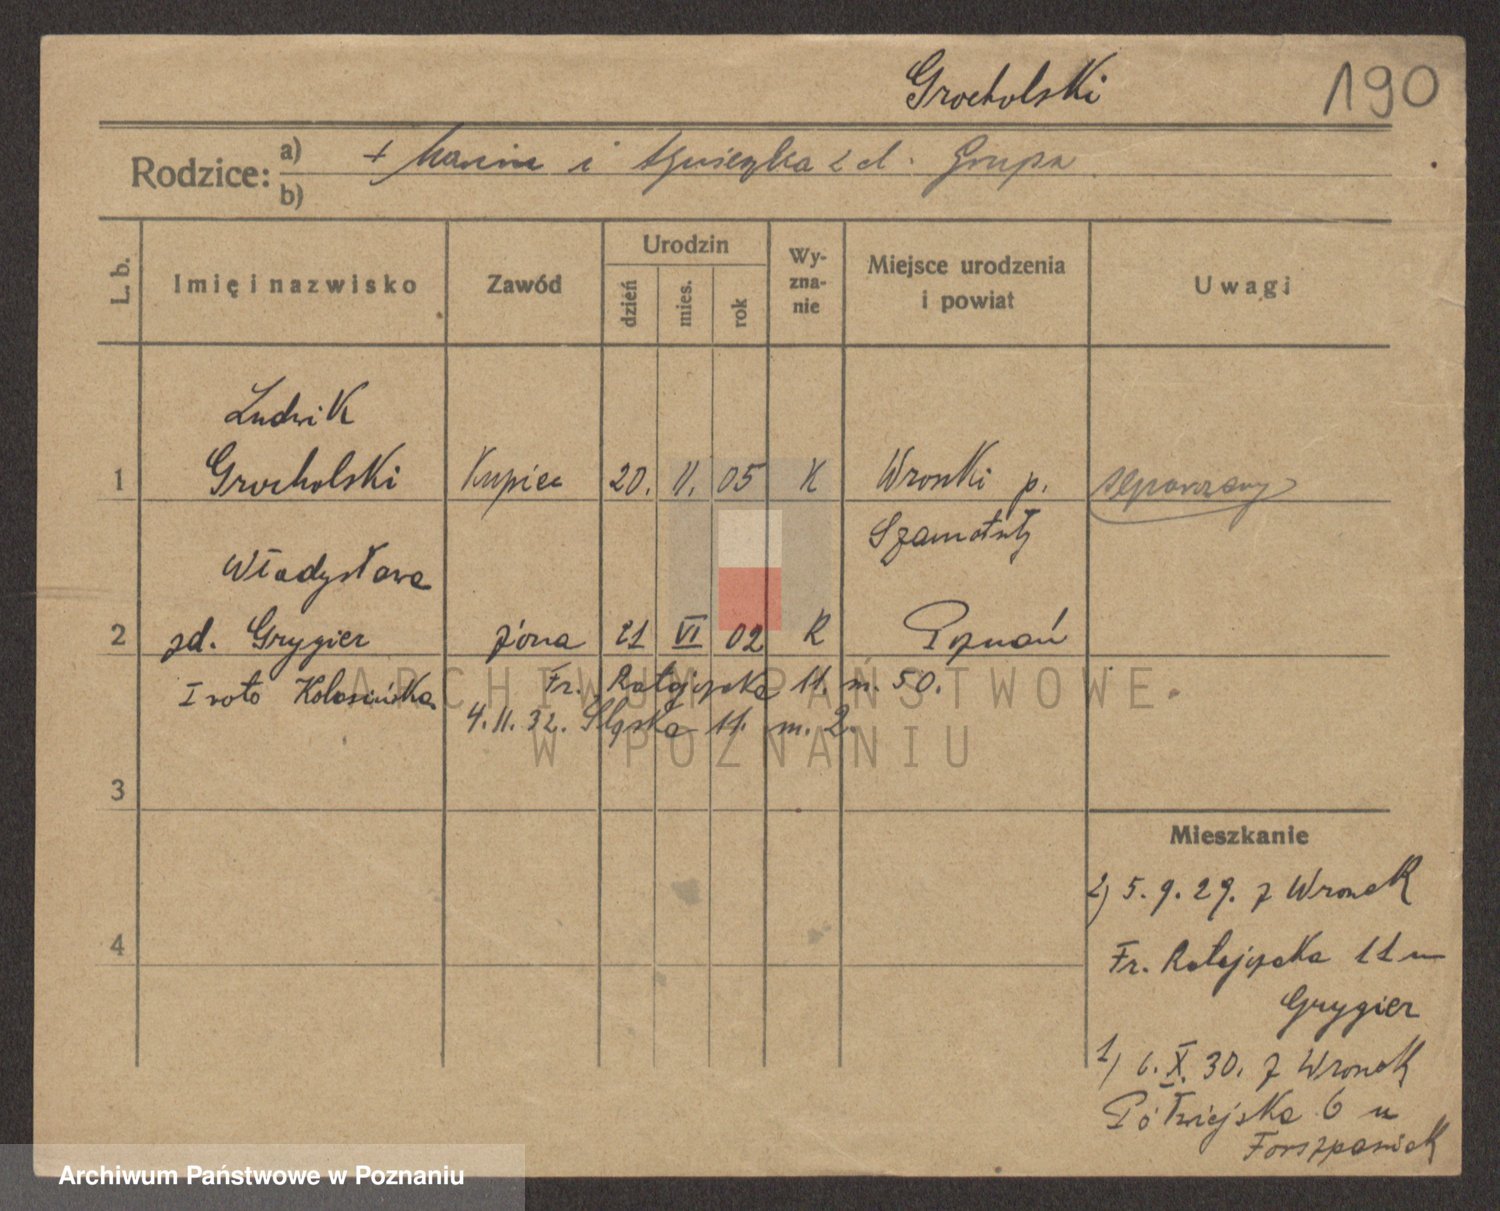 Grocholski
190
Rodzice:
a) + Marcin i Agnieszka z d. Grupa
b)
L. b.
Imię i nazwisko
Zawód
Urodzin
dzień
mies.
rok
Wy-
zna-
nie
Miejsce urodzenia
i powiat
Uwagi
Ludwik
1 Grocholski Kupiec 20. II. 05 K Wronki p.
Szamotuły
Władysława
2 zd. Grygier żona 21 VI 02 R Poznań
I voto Kolasińska
Fr. Ratajczaka 11. m. 50.
4.II.32. Śląska 11 m. 2.
ARCHIWUM PAŃSTWOWE
W POZNANIU
3
4
Mieszkanie
2) 5.9.29. z Wronek
Fr. Ratajczaka 11 u
Grygier
1) 6.X.30. z Wronek
Półwiejska 6 u
Archiwum Państwowe w Poznaniu